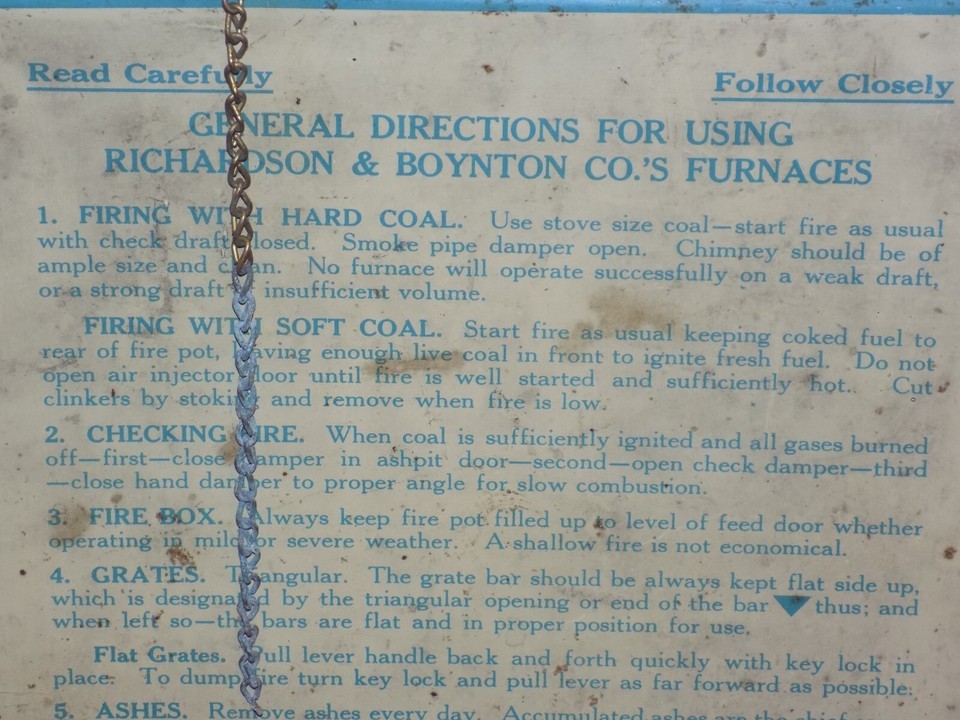 Read Carefully
Follow Closely
GENERAL DIRECTIONS FOR USING
RICHARDSON & BOYNTON CO.'S FURNACES
1. FIRING WITH HARD COAL. Use stove size coal—start fire as usual
with check draft closed. Smoke pipe damper open. Chimney should be of
ample size and clean. No furnace will operate successfully on a weak draft,
or a strong draft insufficient volume.
FIRING WITH SOFT COAL. Start fire as usual keeping coked fuel to
rear of fire pot, having enough live coal in front to ignite fresh fuel. Do not
open air injector door until fire is well started and sufficiently hot. Cut
clinkers by stoking and remove when fire is low.
2. CHECKING FIRE. When coal is sufficiently ignited and all gases burned
off—first—close damper in ashpit door—second—open check damper—third
—close hand damper to proper angle for slow combustion.
3. FIRE BOX. Always keep fire pot filled up to level of feed door whether
operating in mild or severe weather. A shallow fire is not economical.
4. GRATES. Triangular. The grate bar should be always kept flat side up,
which is designated by the triangular opening or end of the bar thus; and
when left so—the bars are flat and in proper position for use.
Flat Grates. Pull lever handle back and forth quickly with key lock in
place. To dump fire turn key lock and pull lever as far forward as possible.
5. ASHES. Remove ashes every day. Accumulated ashes are the chief